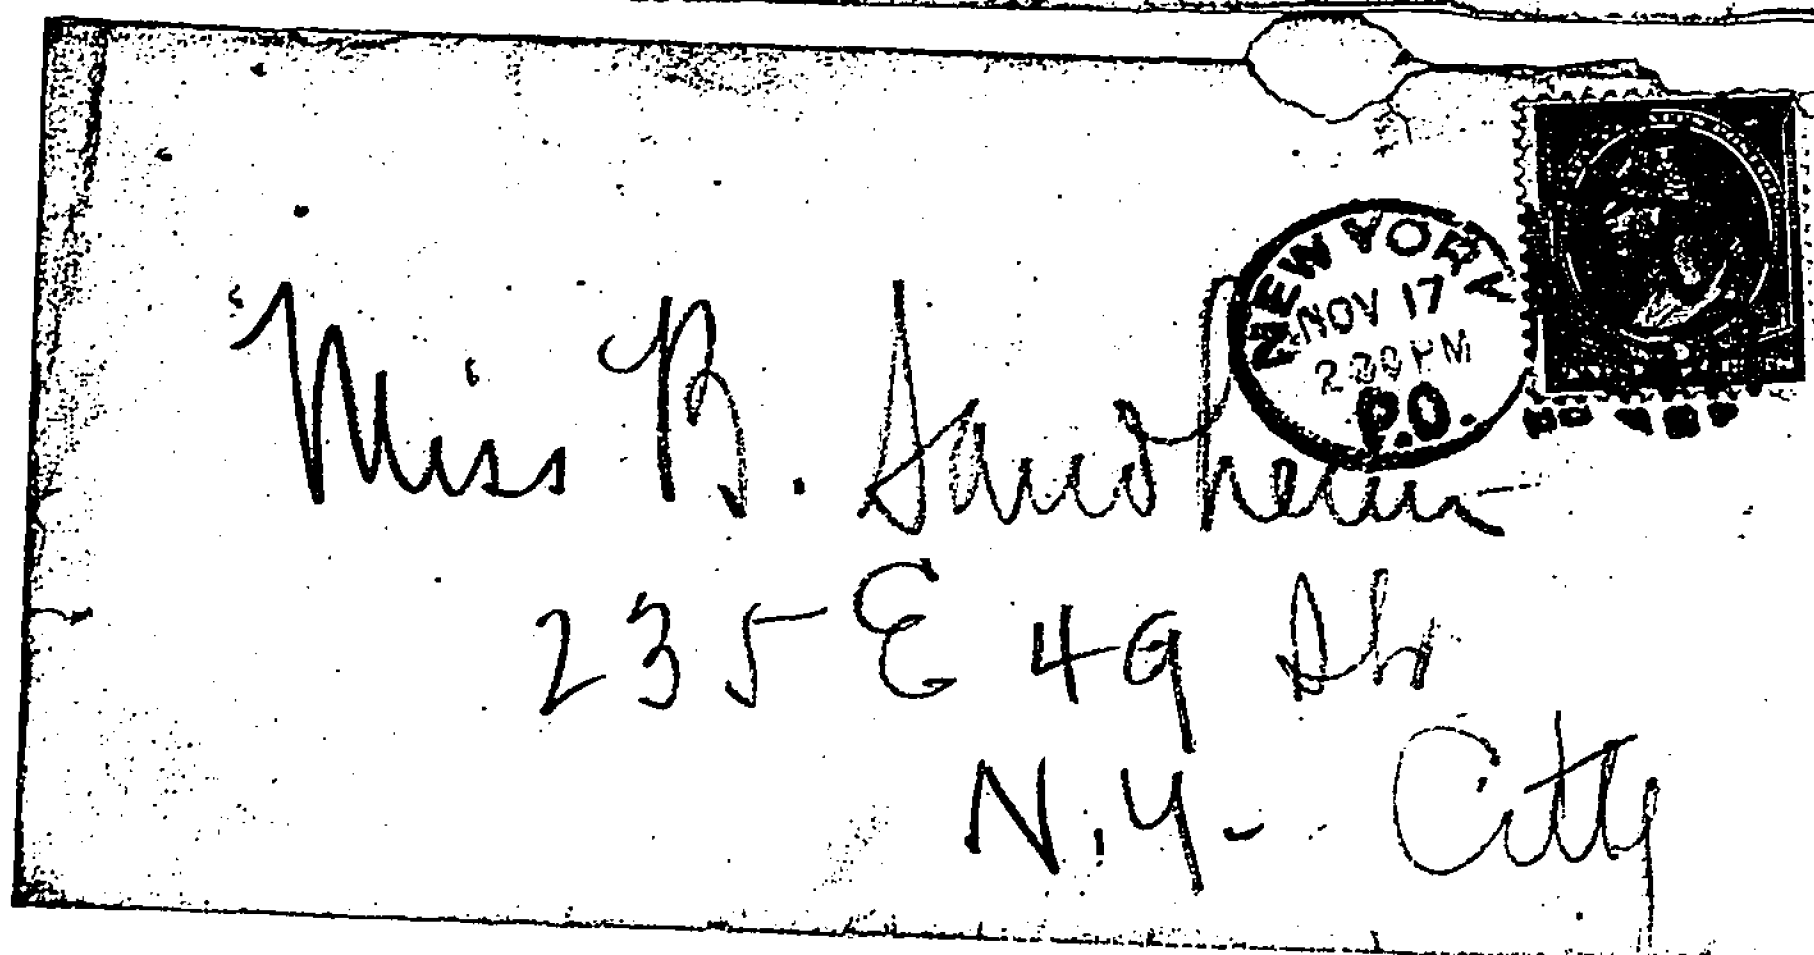 NEW YORK
NOV 17
230 PM
P.O.
Miss B.
235 E 49 St
N.Y. City